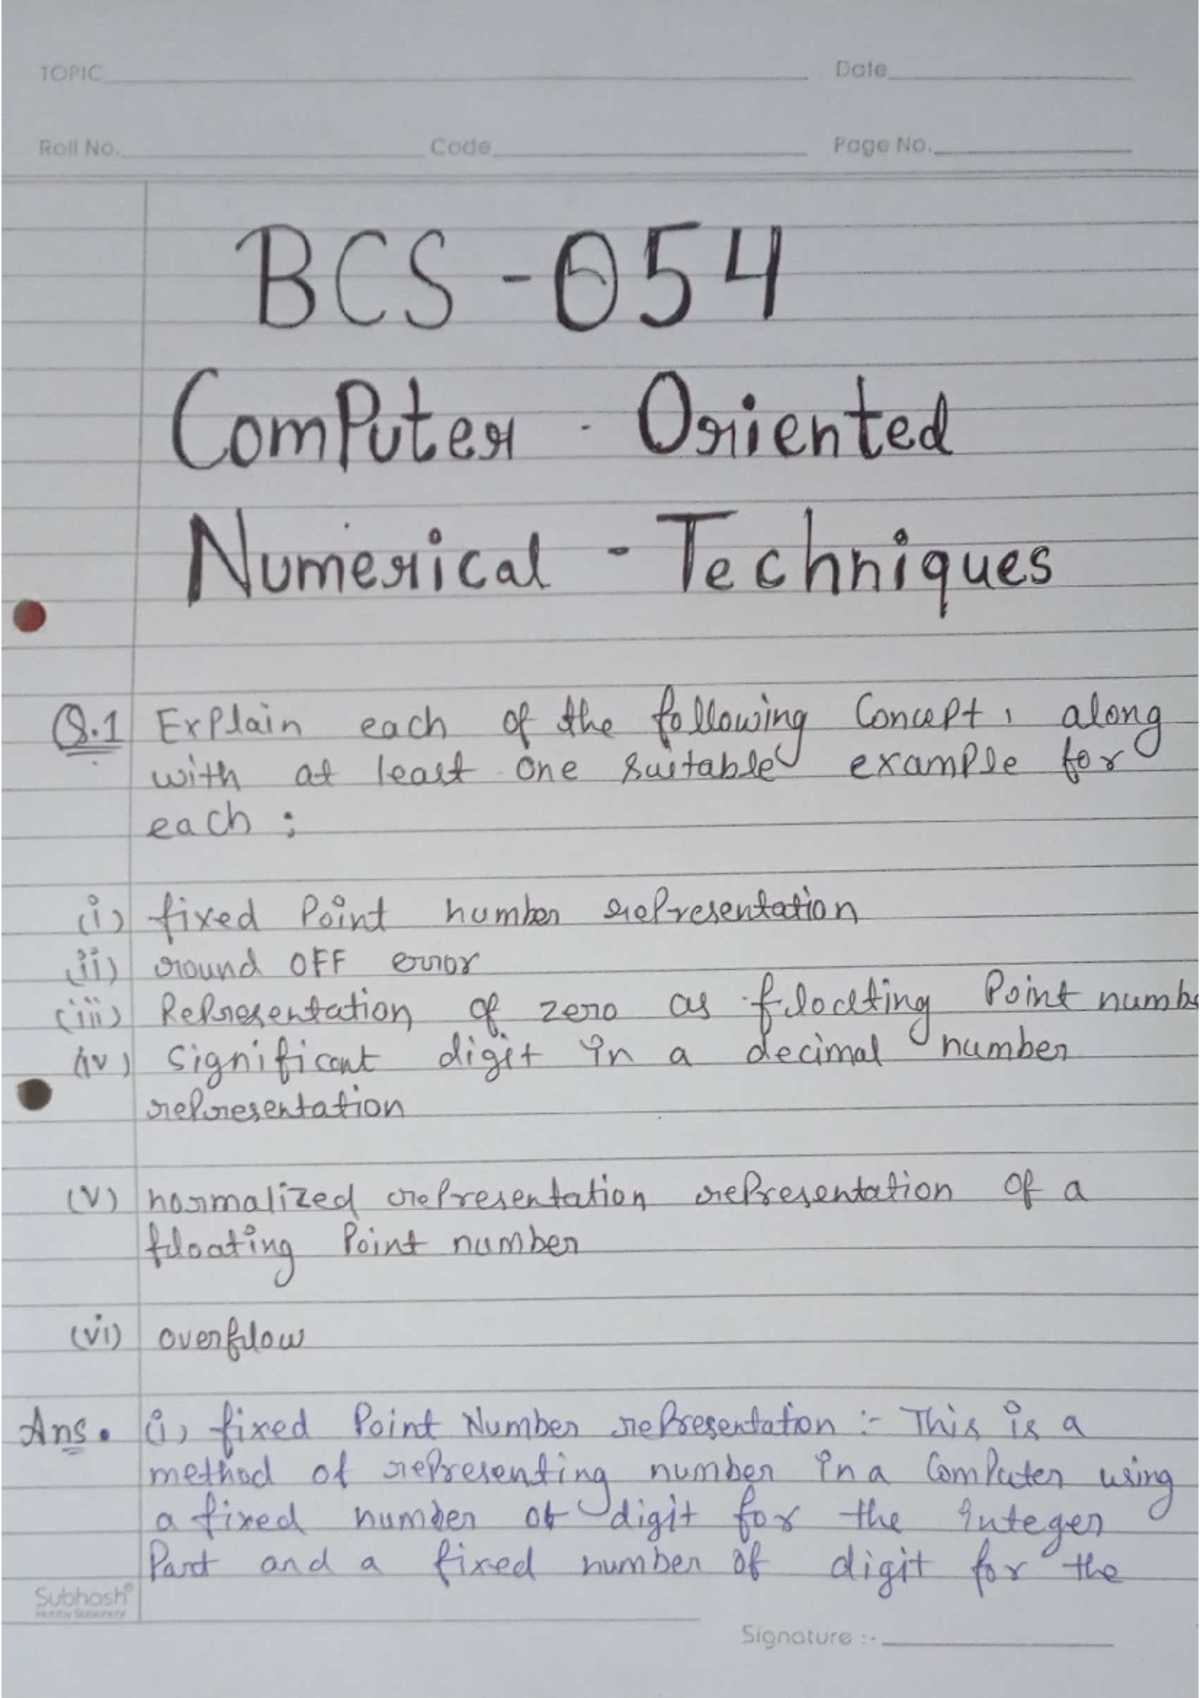 TOPIC Date
Roll No. Code Page No.
BCS-054
Computer - Oriented
Numerical - Techniques
Q.1 Explain each of the following Concept, along
with at least one suitable example for
each :
(i) fixed Point number representation
(ii) round OFF error
(iii) Representation of zero as floating Point numbe
(iv) significant digit in a decimal number
representation
(v) normalized representation representation of a
floating Point number
(vi) overflow
Ans. (i) fixed Point Number representation :- This is a
method of representing number in a Computer using
a fixed number of digit for the integer
Part and a fixed number of digit for the
Subhash
Signature :-